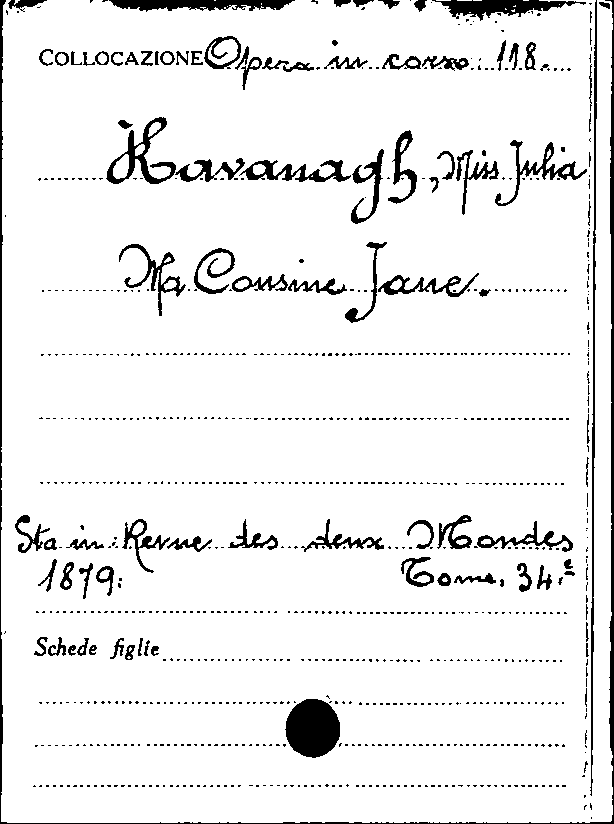 COLLOCAZIONE Opera in corso. 118.
Kavanagh, Miss Julia
Ma Cousine Jane.
Sta in: Revue des deux Mondes
1879. Tome. 34.e
Schede figlie